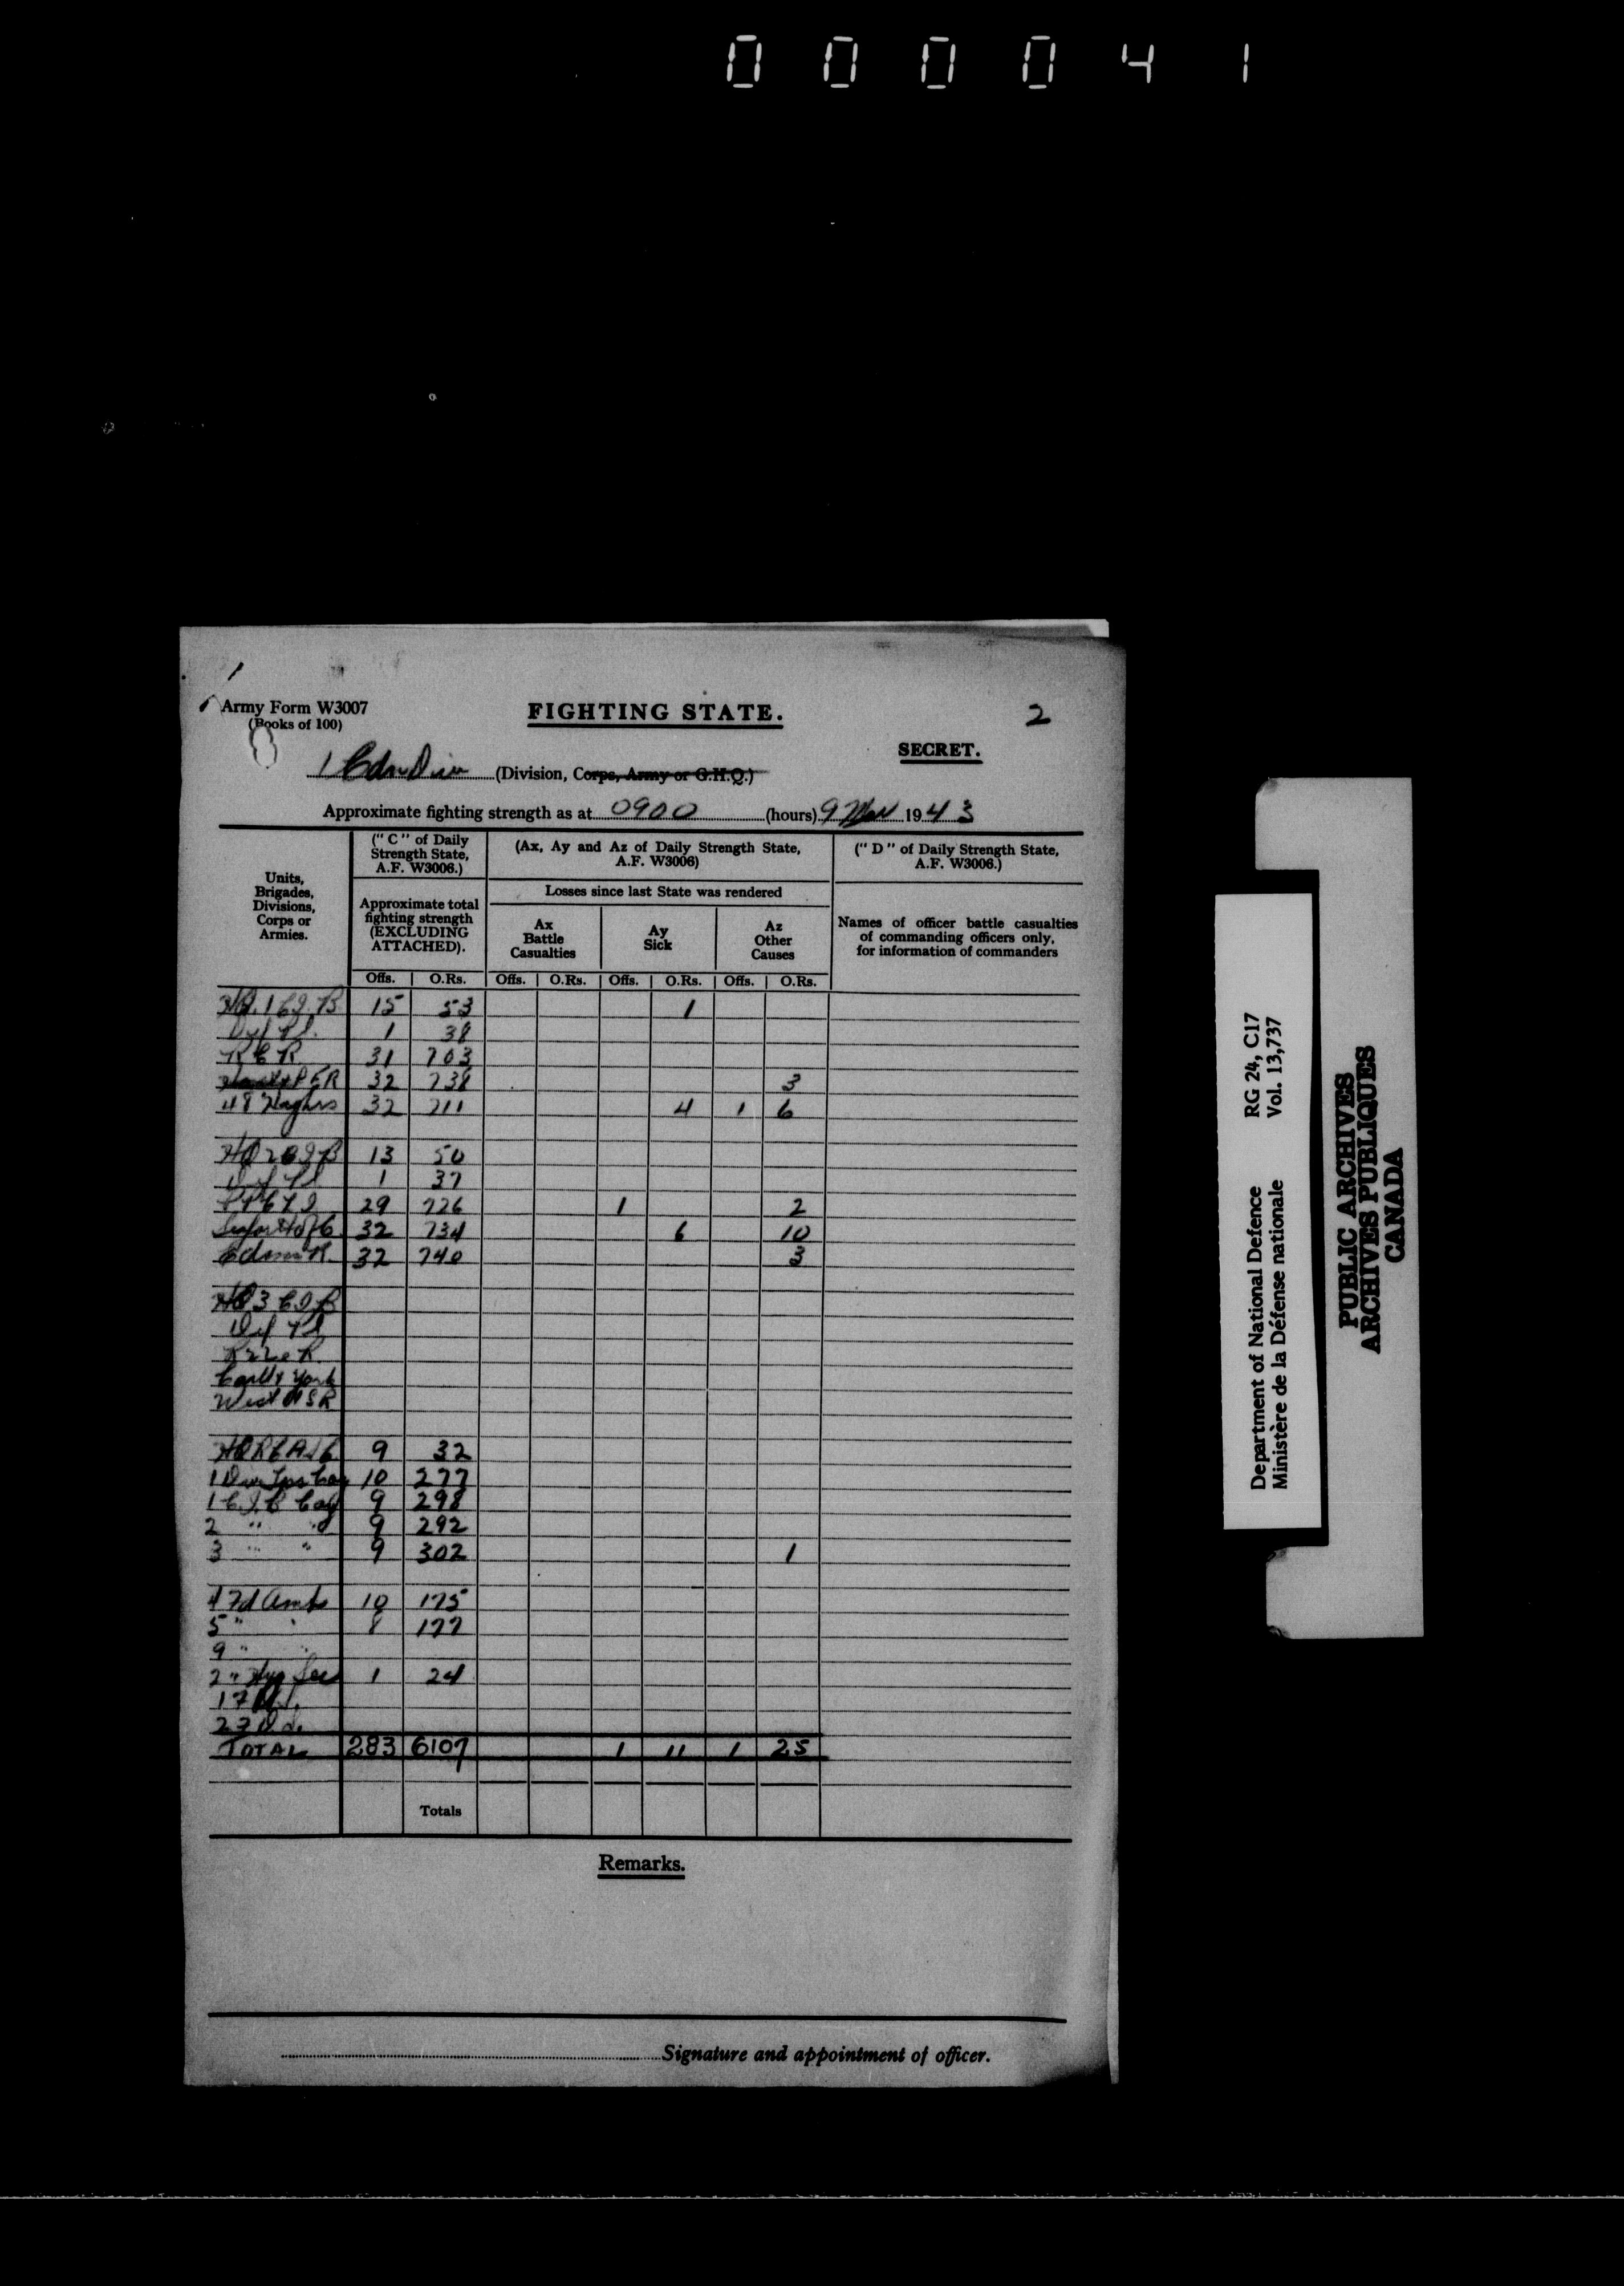 000041
Army Form W3007
(Books of 100)
FIGHTING STATE.
2
SECRET.
1 Cdn Div (Division, Corps, Army or G.H.Q.)
Approximate fighting strength as at 0900 (hours) 9 Nov 1943
Units, Brigades, Divisions, Corps or Armies.
("C" of Daily Strength State, A.F. W3006.)
Approximate total fighting strength (EXCLUDING ATTACHED).
(Ax, Ay and Az of Daily Strength State, A.F. W3006)
Losses since last State was rendered
Ax Battle Casualties
Ay Sick
Az Other Causes
("D" of Daily Strength State, A.F. W3006.)
Names of officer battle casualties of commanding officers only, for information of commanders
Offs. O.Rs. Offs. O.Rs. Offs. O.Rs. Offs. O.Rs.
HQ 1 C.I.B 15 53 1
Def Pl. 1 38
RCR 31 703
Hast & PER 32 738 3
48 Highrs 32 711 4 1 6
HQ 2 CIB 13 50
Def Pl 1 37
PPCLI 29 726 1 2
Seafor H of C 32 734 6 10
Edmn R. 32 740 3
HQ 3 CIB
Def Pl
R22eR
Carlt & York
West NSR
HQ RCASC 9 32
1 Div Tps Coy 10 277
1 C.I.B Coy 9 298
2 " " 9 292
3 " " 9 302 1
4 Fd Amb 10 175
5 " " 8 177
9 " "
2 " Hyg Sec 1 24
TOTAL 283 6107 1 11 1 25
Totals
Remarks.
Signature and appointment of officer.
Department of National Defence RG 24, C17
Ministère de la Défense nationale Vol. 13,737
PUBLIC ARCHIVES
ARCHIVES PUBLIQUES
CANADA